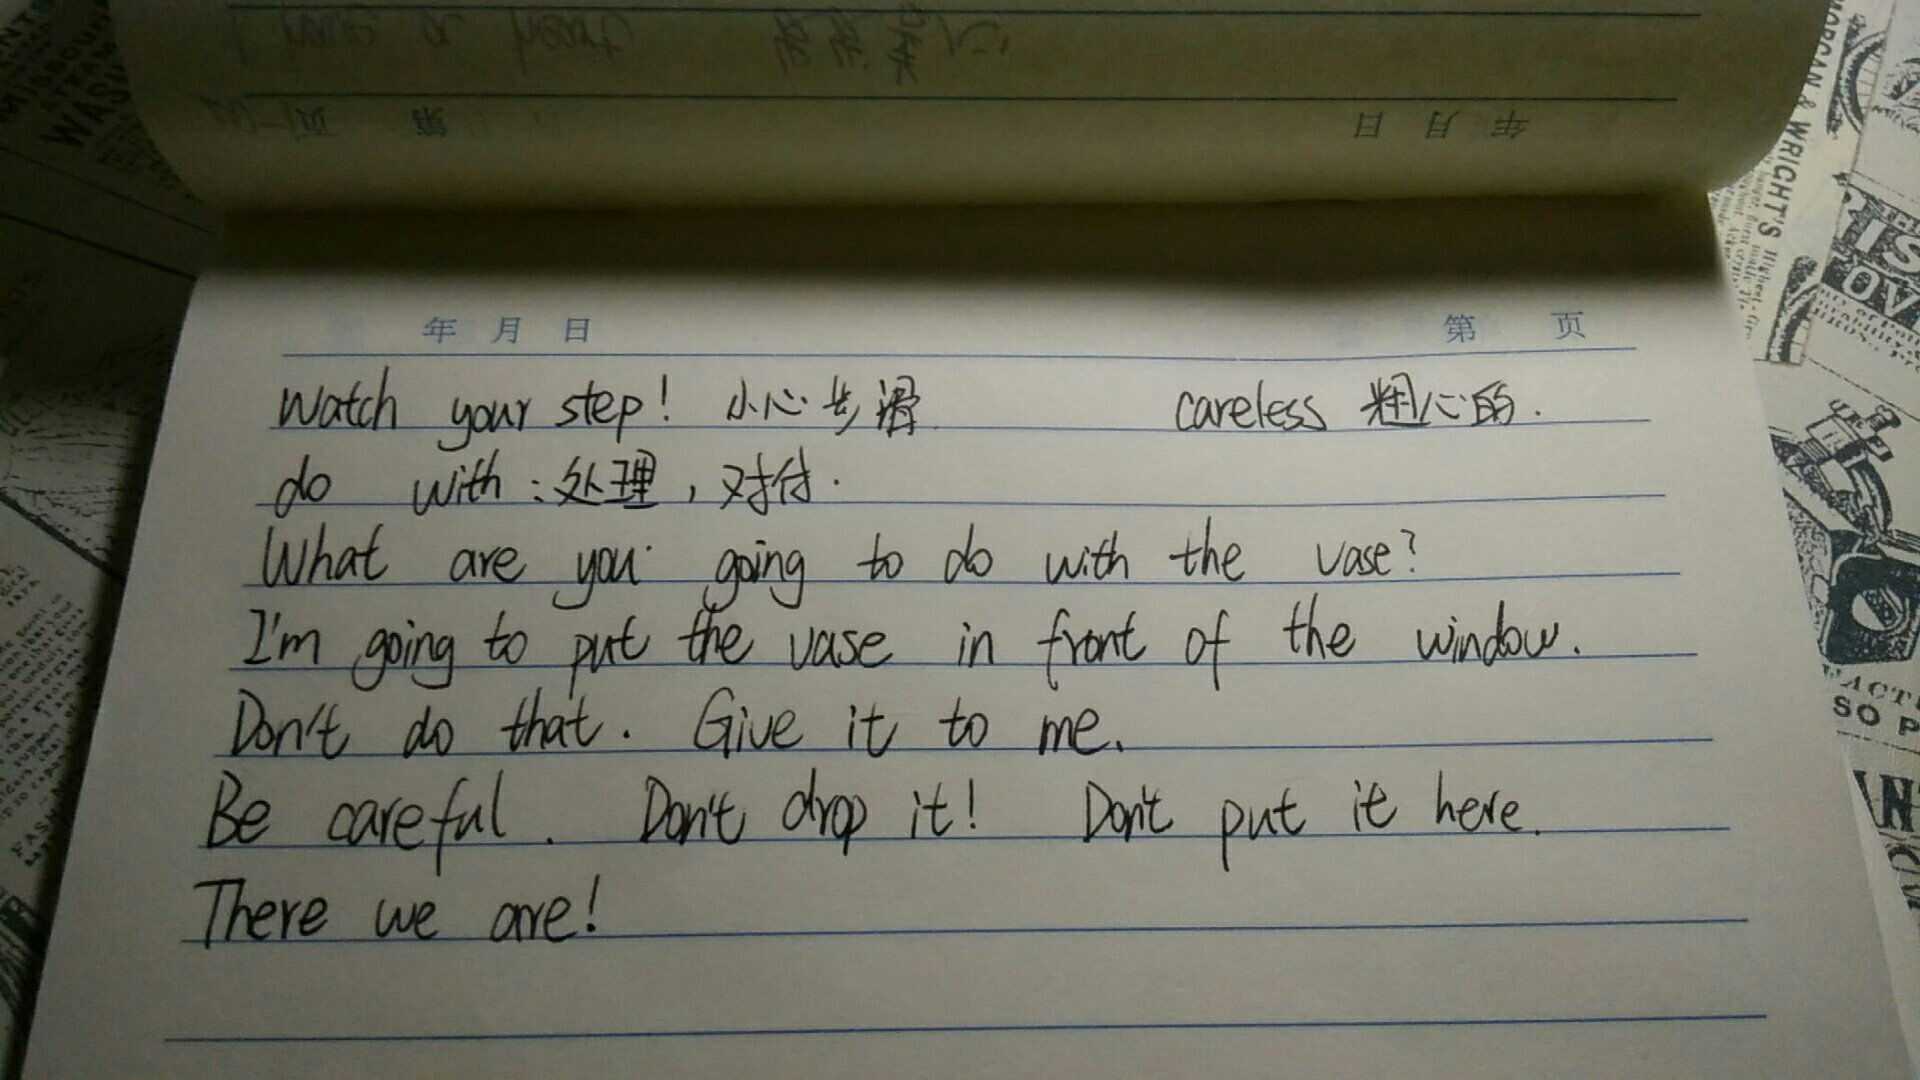 年 月 日 第 页
Watch your step! 小心步滑 careless 粗心的.
do with:处理,对付.
What are you going to do with the vase?
I'm going to put the vase in front of the window.
Don't do that. Give it to me.
Be careful. Don't drop it! Don't put it here.
There we are!
MORGAN & WRIGHT'S
SO P